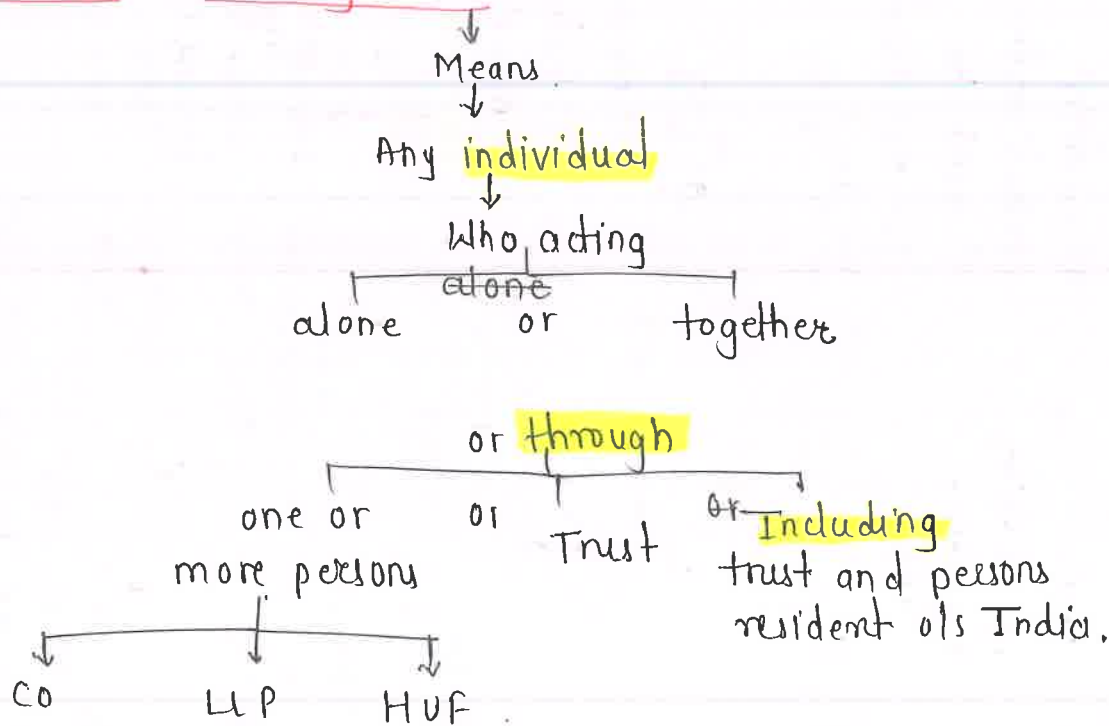 Means.
Any individual
Who acting
alone
alone or together
or through
one or more persons
or
Trust
or Including trust and persons resident o/s India.
CO LLP HUF.